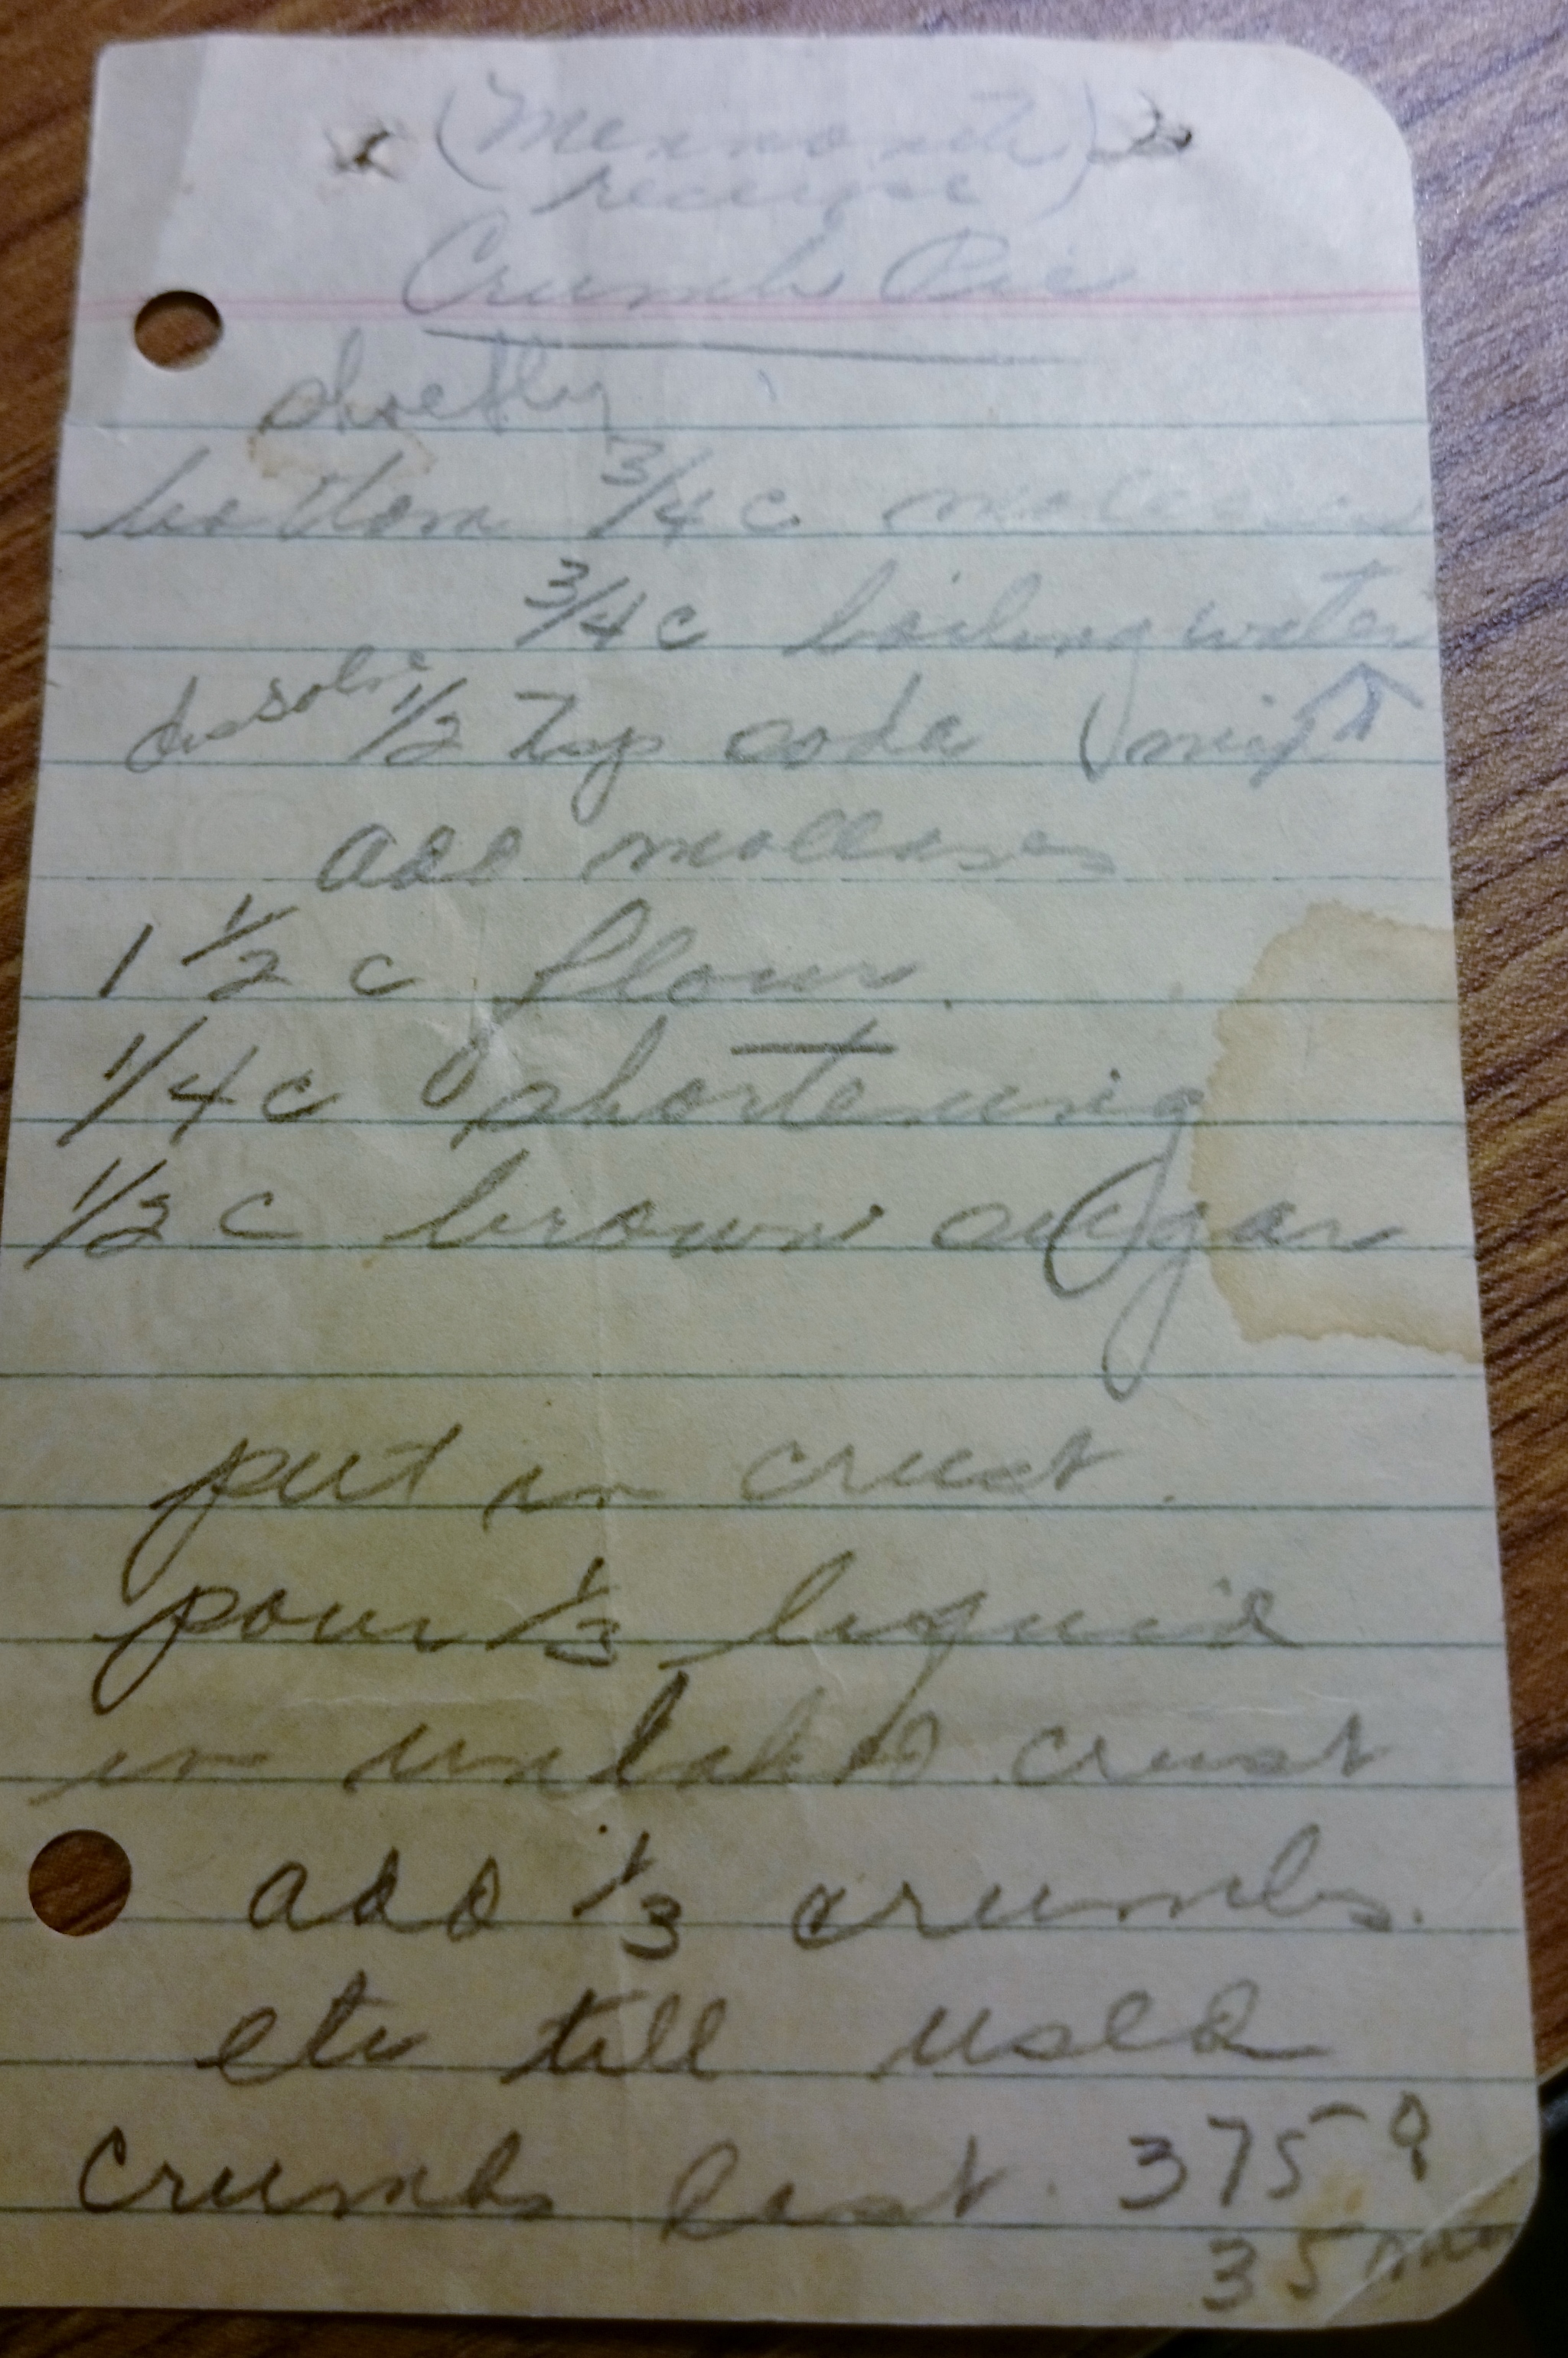 (Mennonite
receipe)
Crumb Pie
shoefly
bottom 3/4 c molasses
3/4 c boiling water
dissolve 1/2 Tsp soda (mix ↑
add mollasses
1 1/2 c flour
1/4 c shortening
1/2 c brown sugar
put in crust.
pour 1/3 liquid
in unbaked crust
add 1/3 crumbs.
etc till used
crumbs last. 375°
35 min